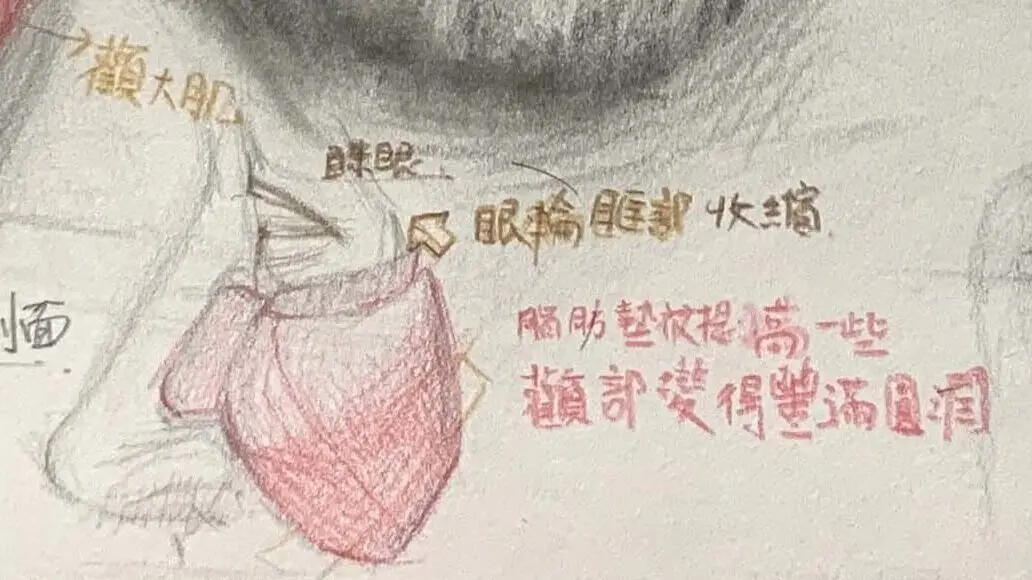 顴大肌
眯眼
眼輪眶部 收縮
面
脂肪墊被提高一些
顴部變得豐滿圓潤